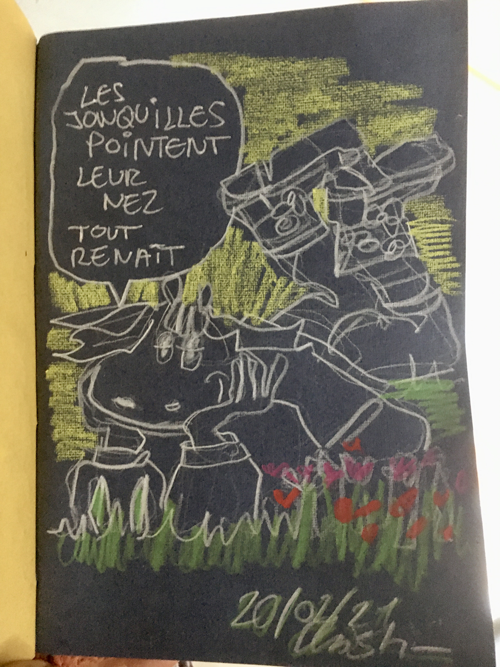 LES
JONQUILLES
POINTENT
LEUR
NEZ
TOUT
RENAÎT
20/02/21